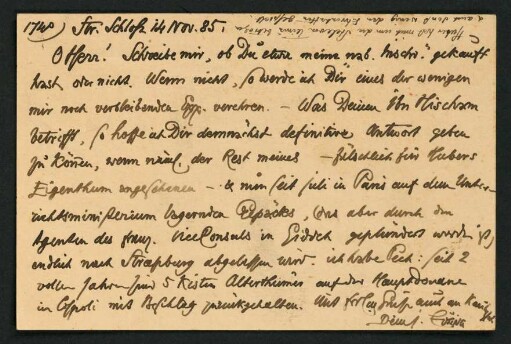 1740) Str. Schloß 14 Nov. 85.
O Herr! Schreibe mir, ob Du etwa meine nab. Inschr. gekauft
hast, oder nicht. Wenn nicht, so werde ich Dir eines der wenigen
mir noch verbleibenden Expp. verehren. – Was Deinen Ibn Hischam
betrifft, so hoffe ich Dir demnächst definitive Antwort geben
zu können, wenn näml. der Rest meines – fälschlich für Hubers
Eigenthum angesehenen – & nun seit Juli in Paris auf dem Unter-
richtsministerium lagernden Gepäcks, das aber durch den
Agenten des franz. ViceConsuls in Giddah geplündert worden ist,
endlich nach Straßburg abgelassen wird. ich habe Pech: seit 2
vollen Jahren sind 5 Kisten Alterthümer auf der Hauptdouane
in Cspoli mit Beschlag zurückgehalten. Mit Gruß auch an
Dein J. Euting